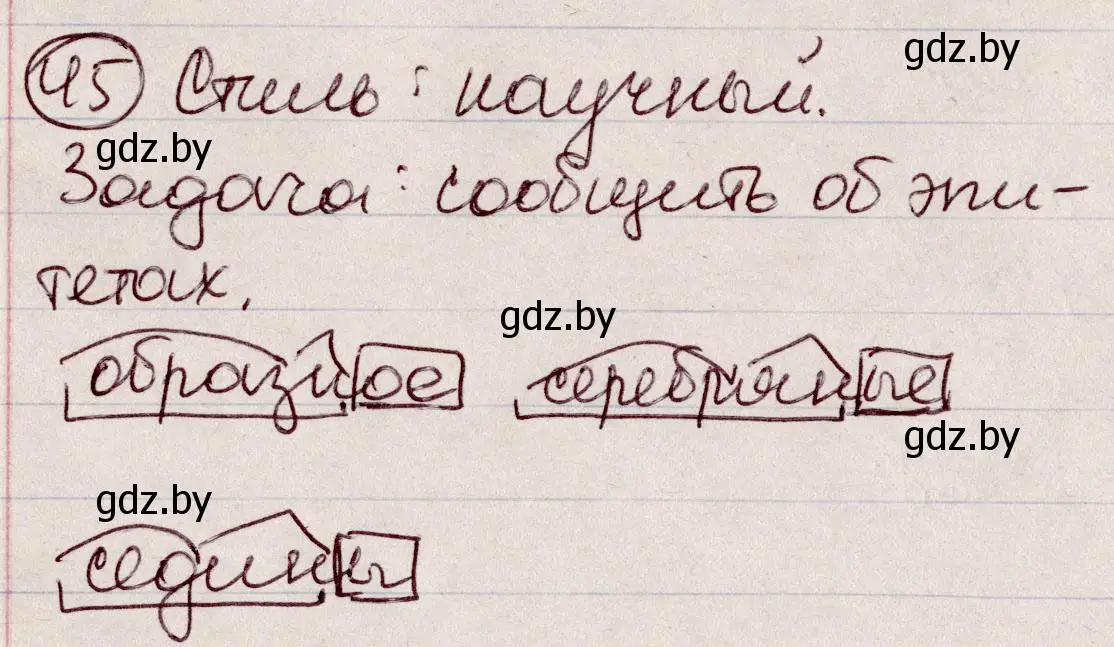 gdz.by
45 Стиль: научный.
gdz.by
Задача: сообщить об эпи-
тетах.
gdz.by
образное серебряные
gdz.by
gdz.by
седины